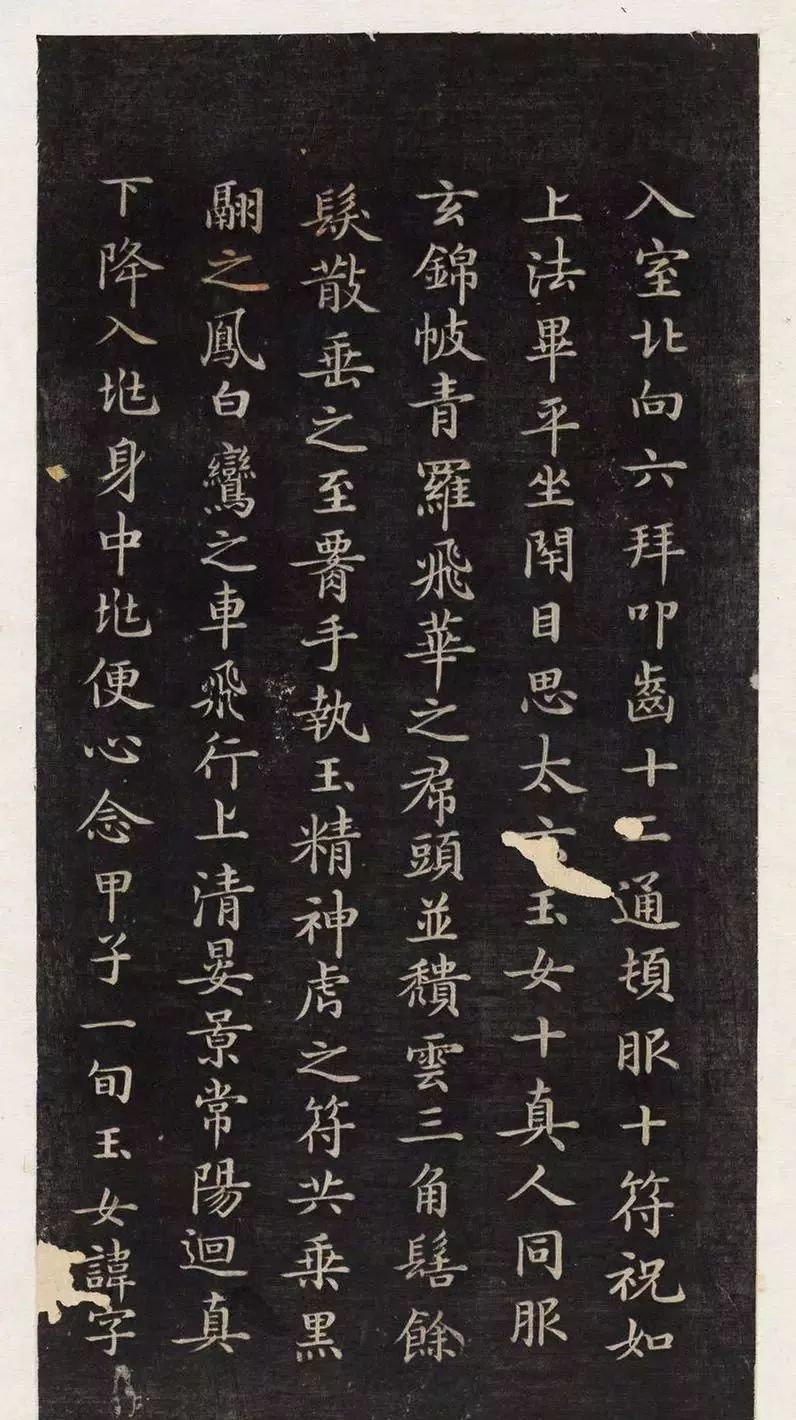 入室北向六拜叩齒十二通頓服十符祝如
上法畢平坐閇目思太玄玉女十真人同服
玄錦帔青羅飛華之帬頭並穨雲三角髻餘
髮散垂之至署手執玉精神虎之符共乘黑
翮之鳳白鸞之車飛行上清晏景常陽迴真
下降入兆身中兆便心念甲子一旬玉女諱字